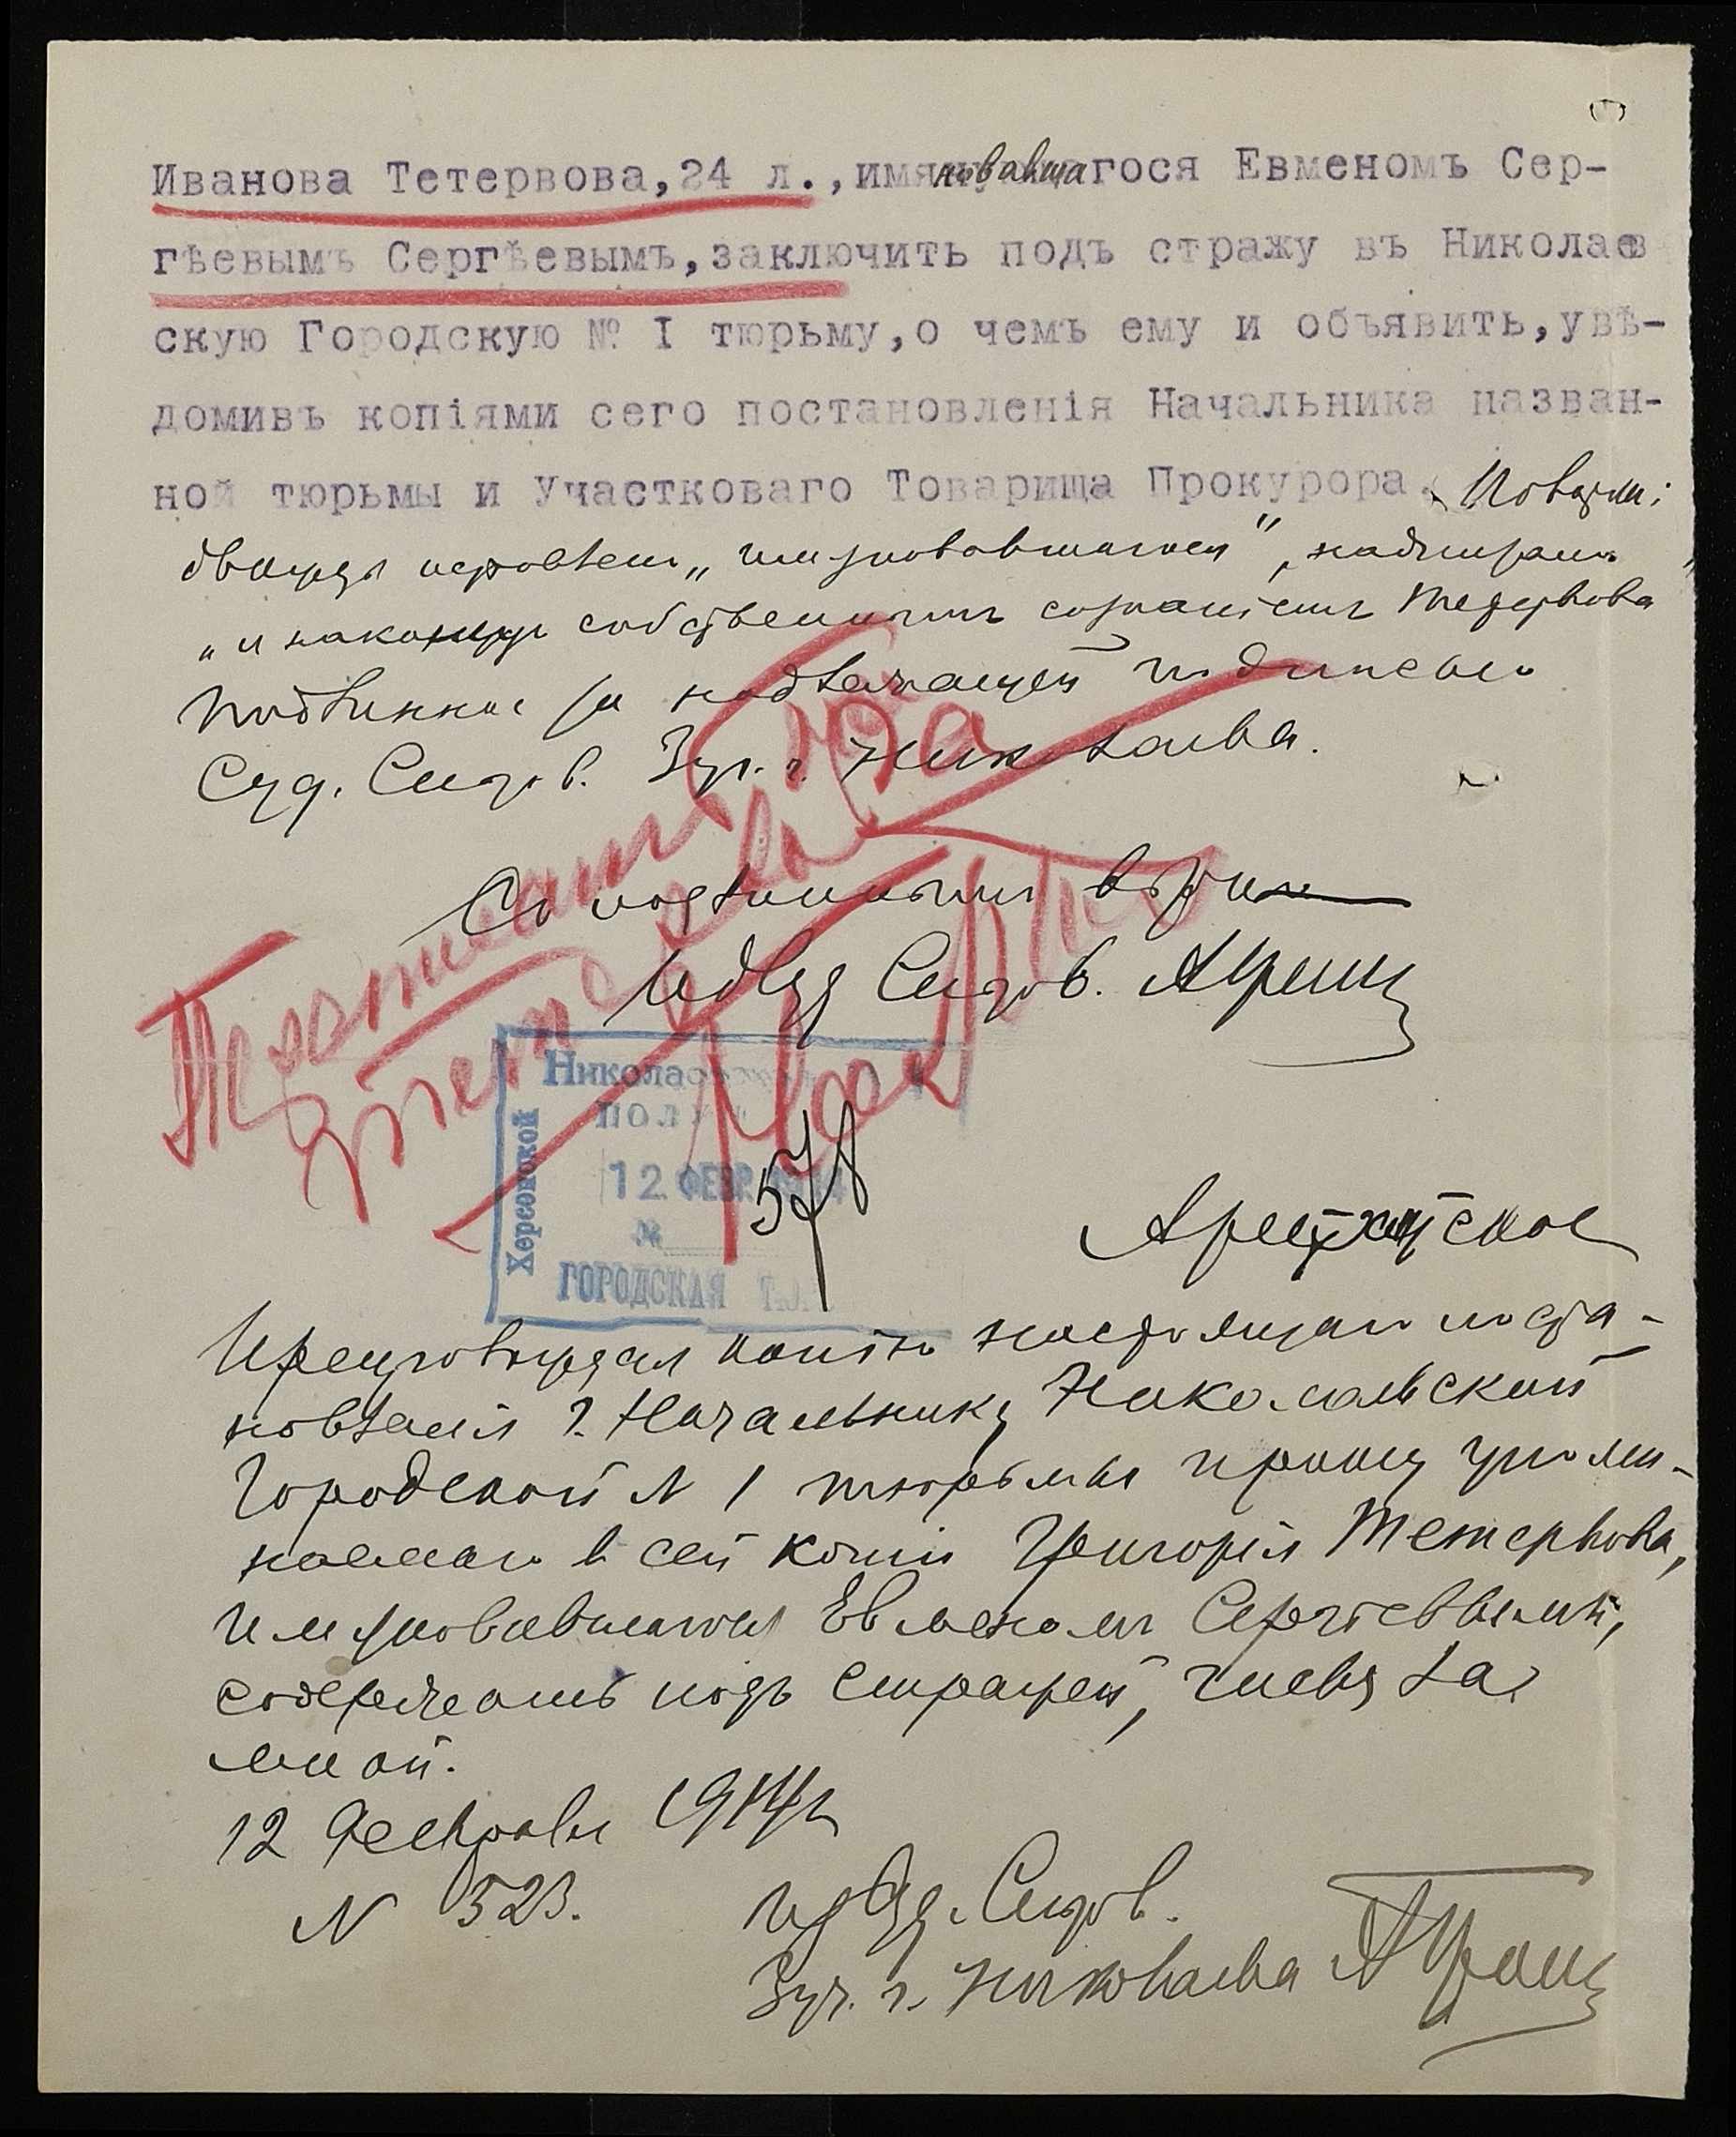 Иванова Тетервова,24 л.,именовавшагося Евменомъ Сер-
гѣевымъ Сергѣевымъ,заключить подъ стражу въ Николаев
скую Городскую № I тюрьму,о чемъ ему и объявить,увѣ-
домивъ копіями сего постановленія Начальника назван-
ной тюрьмы и Участковаго Товарища Прокурора.
„именовавшагося", надписано
„и наконецъ собственнымъ сознаніемъ Тетервова
Подлинное за надлежащей подписью
Суд. Слѣдов. 3 уч. г. Николаева.
Съ подлиннымъ вѣрно
И д Суд Слѣдов.
Николаевская
12 ФЕВР. 1914
№ 578
Херсонской
ГОРОДСКАЯ
Арестантское
Препровождая копію настоящаго поста-
новленія г. Начальнику Николаевской
Городской N 1 тюрьмы прошу упомя-
наемаго в сей копіи Григорія Тетервова,
именовавшагося Евменомъ Сергѣевымъ,
содержать подъ стражей, числя за
мной.
12 Февраля 1914 г
N 523.
И д Суд. Слѣдов.
3 уч. г. Николаева